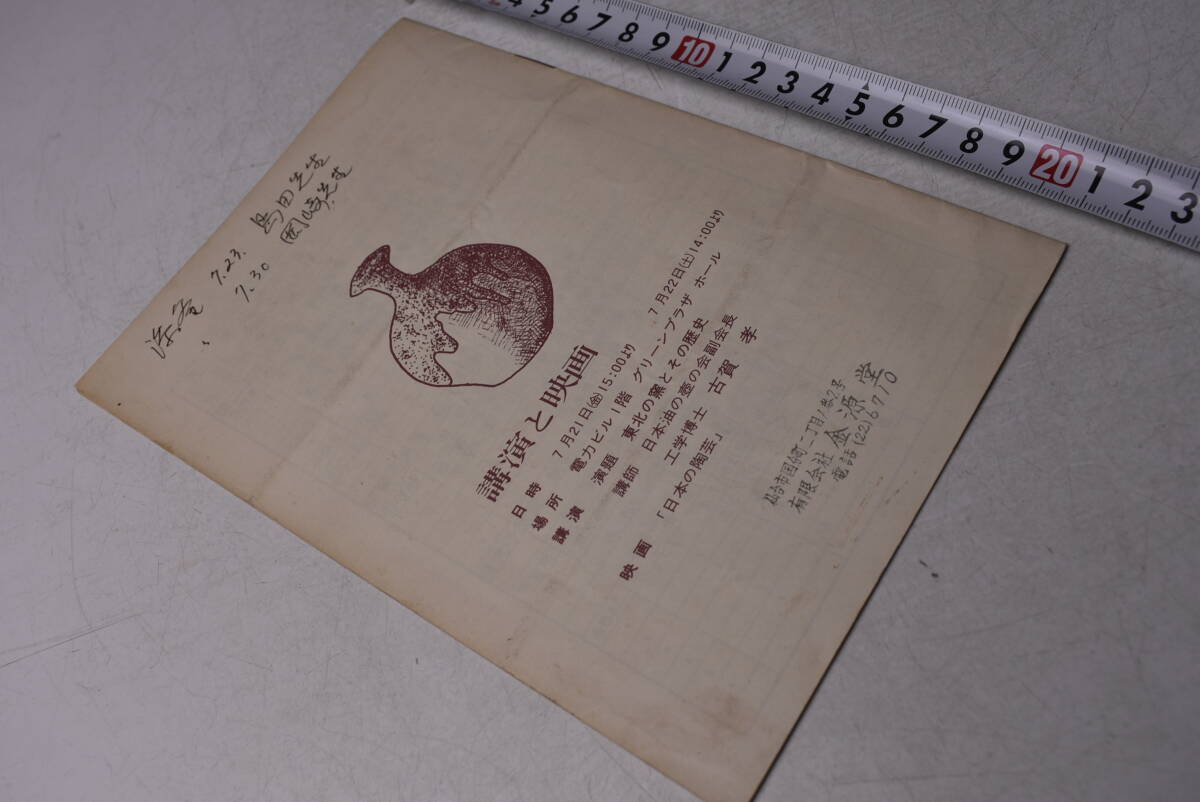 4 5 6 7 8 9 10 1 2 3 4 5 6 7 8 9 20 1 2 3
7.23. 島田先生
7.30 岡崎先生
講演と映画
日時 7月21日(金)15:00より 7月22日(土)14:00より
場所 電力ビル1階 グリーンプラザ ホール
講演 演題 東北の窯とその歴史
講師 日本油の壺の会副会長
工学博士 古賀 孝
映画 「日本の陶芸」
仙台市国分町二丁目1番7号
有限会社 金源堂
電話(22)6710